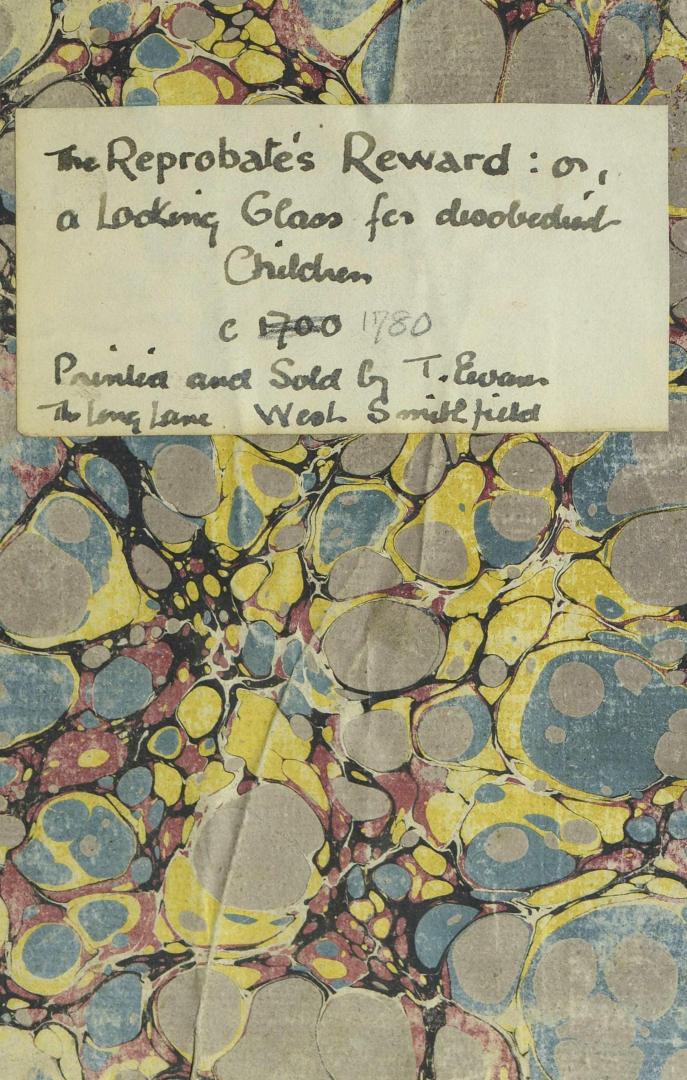 The Reprobate's Reward : or,
a Looking Glass for disobedient
Children
c 1700 1780
Printed and Sold by T. Evans
The Long Lane West Smithfield